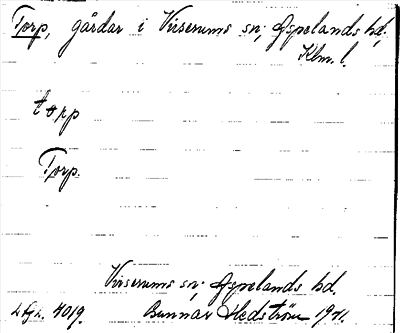 Torp, gårdar i Virserums sn, Aspelands hd,
Klm. l.
torp
Torp.
Virserums sn, Aspelands hd.
4019. Gunnar Hedström 1941.